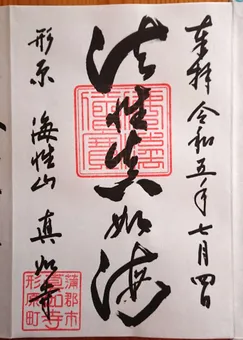 奉拝 令和五年七月四日
法性真如海
形原 海性山 真如寺
蒲郡市
真如寺
形原町